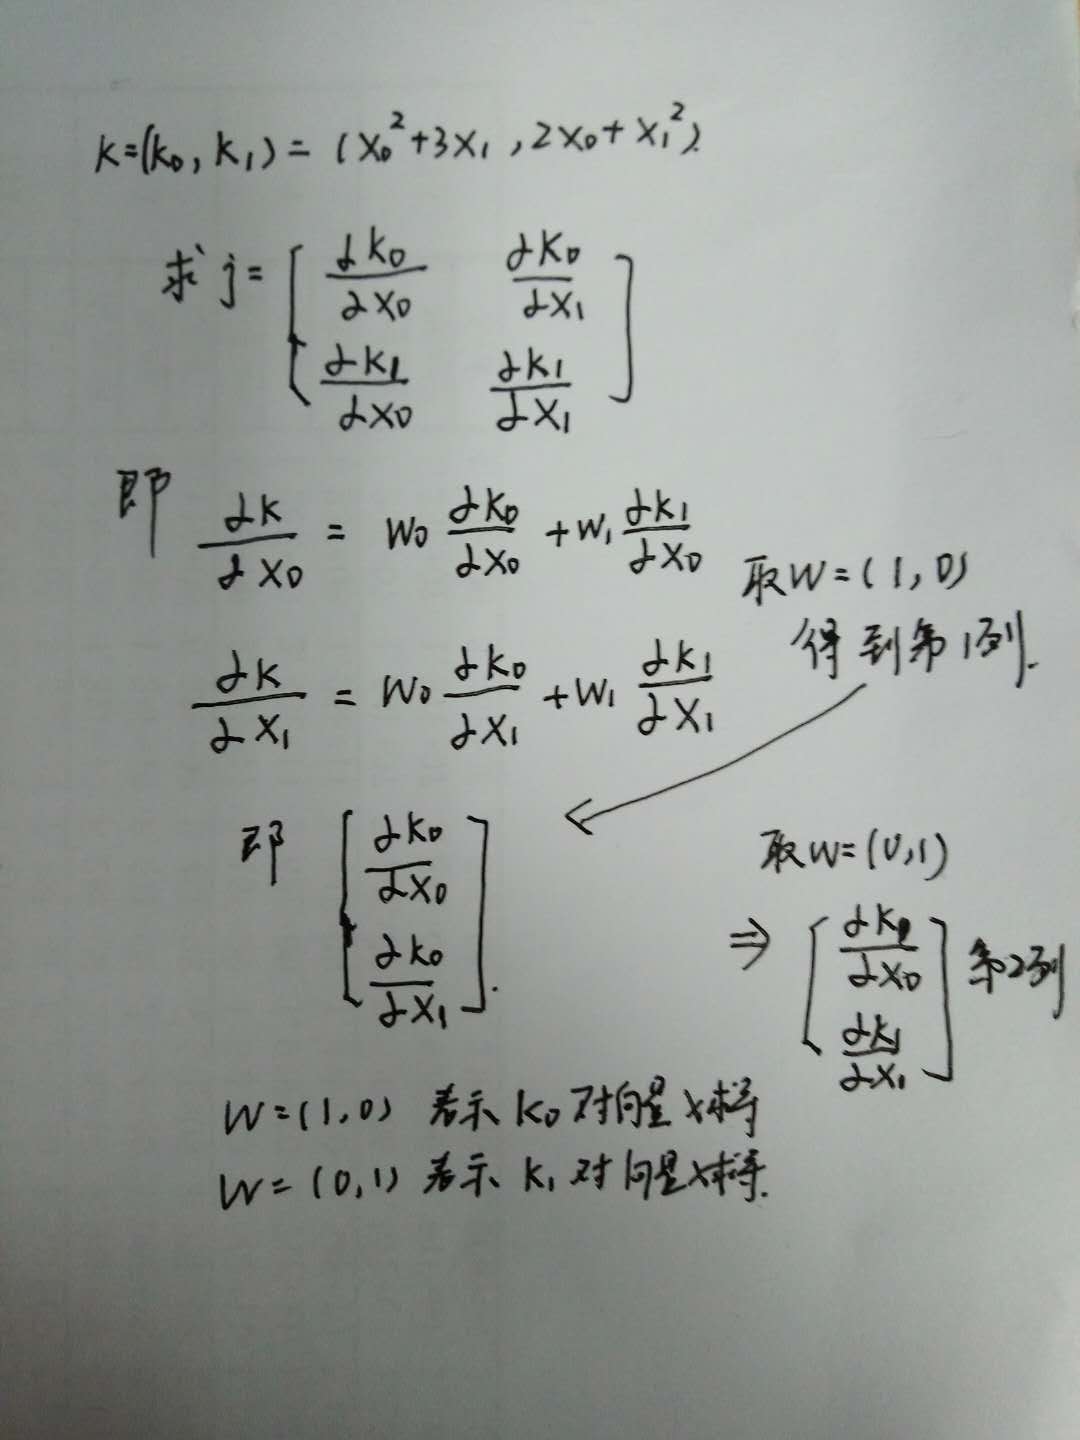 K=(k₀, k₁) = (x₀²+3x₁ , 2x₀+x₁²).
求 j = [ ∂k₀/∂x₀ ∂k₀/∂x₁
∂k₁/∂x₀ ∂k₁/∂x₁ ]
即 ∂k/∂x₀ = w₀ ∂k₀/∂x₀ + w₁ ∂k₁/∂x₀
取W=(1,0)
得到第1列.
∂k/∂x₁ = w₀ ∂k₀/∂x₁ + w₁ ∂k₁/∂x₁
即 [ ∂k₀/∂x₀
∂k₀/∂x₁ ].
取W=(0,1)
⇒ [ ∂k₁/∂x₀
∂k₁/∂x₁ ] 第2列
W=(1,0) 表示 k₀ 对向量x求导
W=(0,1) 表示 k₁ 对向量x求导.